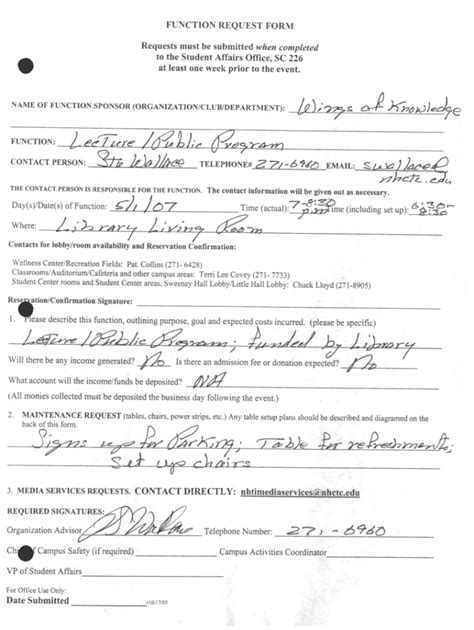 FUNCTION REQUEST FORM
Requests must be submitted when completed
to the Student Affairs Office, SC 226
at least one week prior to the event.
NAME OF FUNCTION SPONSOR (ORGANIZATION/CLUB/DEPARTMENT): Wings of Knowledge
FUNCTION: Lecture/Public Program
CONTACT PERSON: Ste Wallace TELEPHONE# 271-6960 EMAIL: swallace@
nhctc.edu
THE CONTACT PERSON IS RESPONSIBLE FOR THE FUNCTION. The contact information will be given out as necessary.
Day(s)/Date(s) of Function: 5/1/07 Time (actual): 7-8:30 pm Time (including set up): 6:30-8:30
Where: Library Living Room
Contacts for lobby/room availability and Reservation Confirmation:
Wellness Center/Recreation Fields: Pat. Collins (271-6428)
Classrooms/Auditorium/Cafeteria and other campus areas: Terri Lee Covey (271- 7733)
Student Center rooms and Student Center areas, Sweeney Hall Lobby/Little Hall Lobby: Chuck Lloyd (271-8905)
Reservation/Confirmation Signature:
1. Please describe this function, outlining purpose, goal and expected costs incurred. (please be specific)
Lecture/Public Program; funded by Library
Will there be any income generated? No Is there an admission fee or donation expected? No
What account will the income/funds be deposited? NA
(All monies collected must be deposited the business day following the event.)
2. MAINTENANCE REQUEST (tables, chairs, power strips, etc.) Any table setup plans should be described and diagramed on the
back of this form.
Signs up for Parking; Table for refreshments;
Set up chairs
3. MEDIA SERVICES REQUESTS. CONTACT DIRECTLY: nhtimediaservices@nhctc.edu
REQUIRED SIGNATURES:
Organization Advisor S Wallace Telephone Number: 271-6960
Campus Safety (if required) Campus Activities Coordinator
VP of Student Affairs
For Office Use Only:
Date Submitted r10/17/05